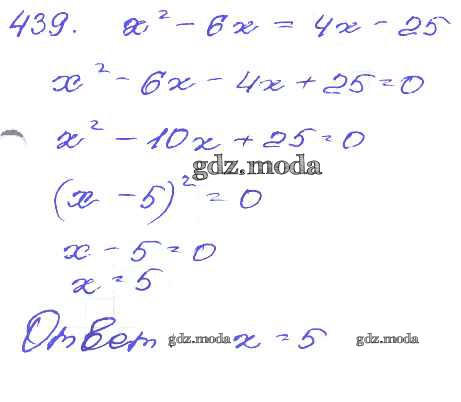 439. x² - 6x = 4x - 25
x² - 6x - 4x + 25 = 0
x² - 10x + 25 = 0
gdz.moda
(x - 5)² = 0
x - 5 = 0
x = 5
Ответ gdz.moda x = 5 gdz.moda